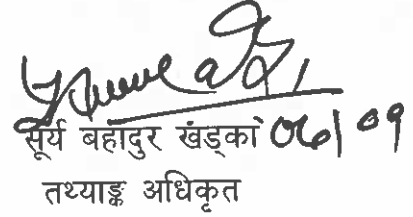 सूर्य बहादुर खड्का 06/09
तथ्याङ्क अधिकृत